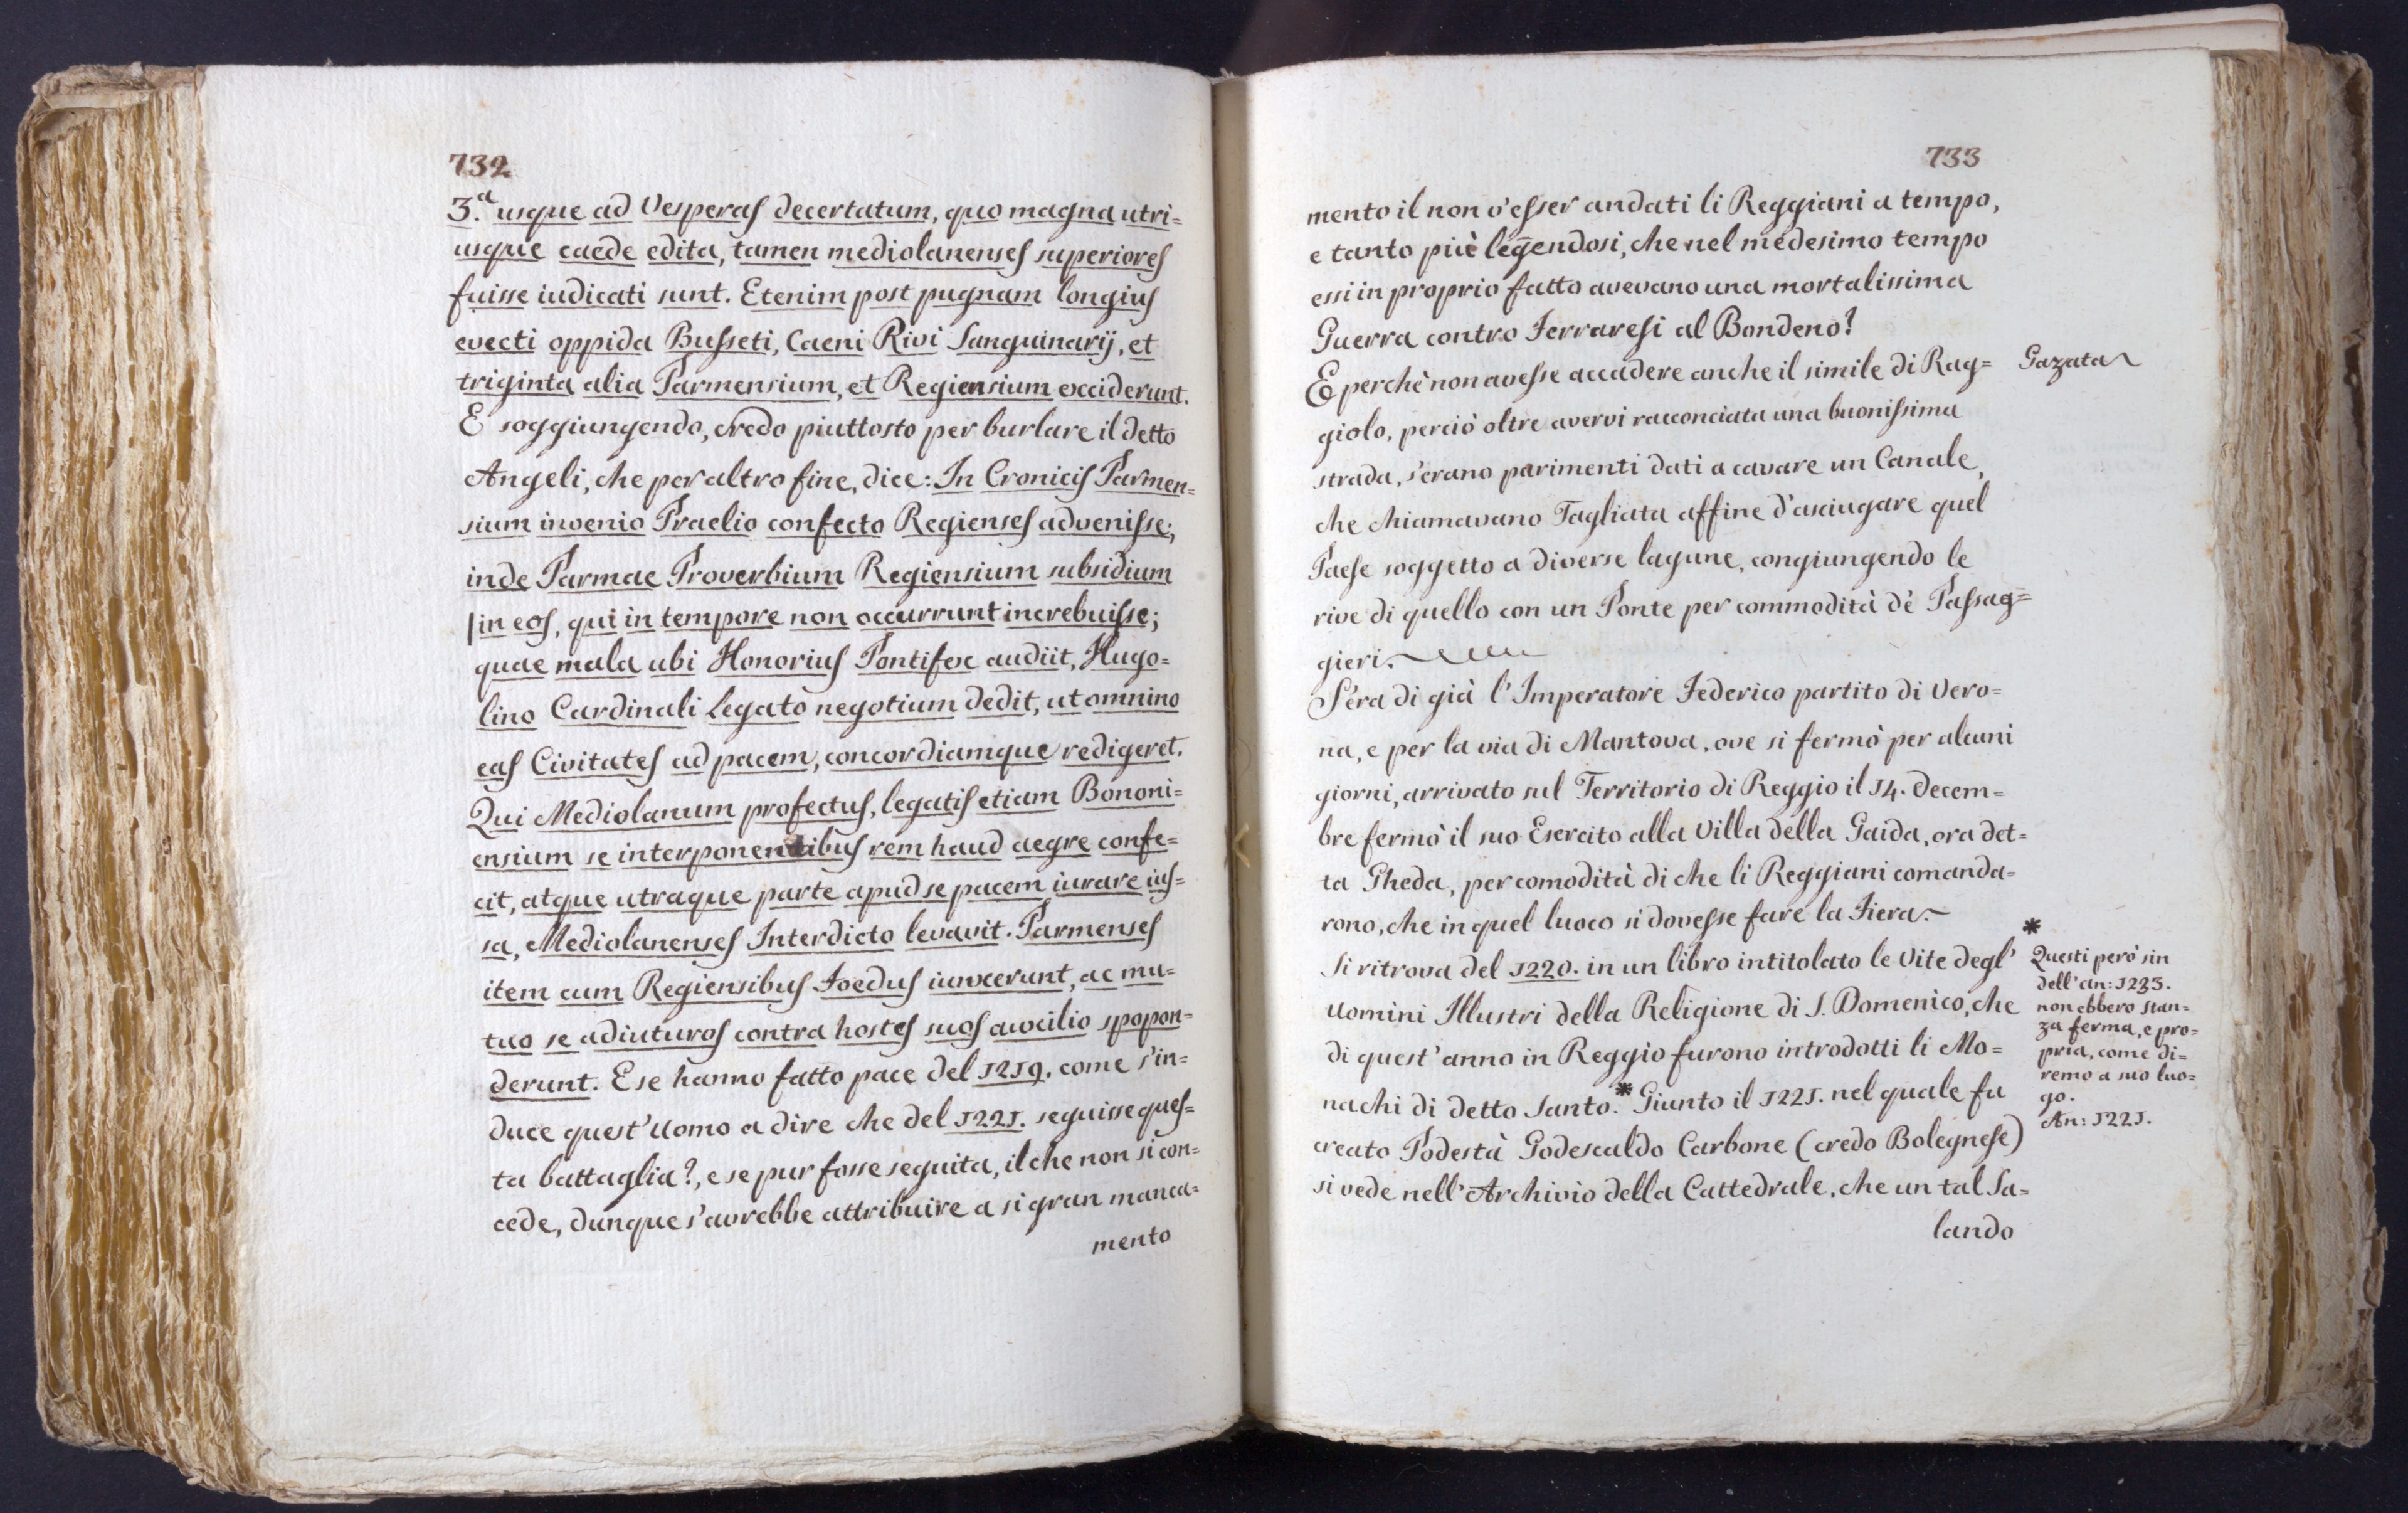 732
3.ª usque ad Vesperas decertatum, quo magna utri=
usque caede edita, tamen mediolanenses superiores
fuisse iudicati sunt. Etenim post pugnam longius
evecti oppida Busseti, Caeni Rivi Sanguinarij, et
triginta alia Parmensium, et Regiensium exciderunt.
E soggiungendo, credo piuttosto per burlare il detto
Angeli, che per altro fine, dice: In Cronicis Parmen=
sium invenio Praelio confecto Regienses advenisse;
inde Parmae Proverbium Regiensium subsidium
in eos, qui in tempore non occurrunt increbuisse;
quae mala ubi Honorius Pontifex audiit, Hugo=
lino Cardinali Legato negotium dedit, ut omnino
eas Civitates ad pacem, concordiamque redigeret.
Qui Mediolanum profectus, legatis etiam Bononi=
ensium se interponentibus rem haud aegre confe=
cit, atque utraque parte apud se pacem iurare ius=
sa, Mediolanenses Interdicto levavit. Parmenses
item cum Regiensibus Foedus iunxerunt, ac mu=
tuo se adiuturos contra hostes suos auxilio spopon=
derunt. E se hanno fatto pace del 1219. come s'in=
duce quest'Uomo a dire che del 1221. seguisse ques=
ta battaglia?, e se pur fosse seguita, il che non si con=
cede, dunque s'avrebbe attribuire a si gran manca=
mento
733
mento il non v'esser andati li Reggiani a tempo,
e tanto più legendosi, che nel medesimo tempo
essi in proprio fatto avevano una mortalissima
Guerra contro Ferraresi al Bondeno?
E perchè non avesse accadere anche il simile di Rag=
giolo, perciò oltre avervi racconciata una buonissima
strada, s'erano parimenti dati a cavare un Canale,
che chiamavano Tagliata affine d'asciugare quel
Paese soggetto a diverse lagune, congiungendo le
rive di quello con un Ponte per commodità dè Passag=
gieri.
S'era di già l'Imperatore Federico partito di Vero=
na, e per la via di Mantova, ove si fermò per alcuni
giorni, arrivato sul Territorio di Reggio il 14. Decem=
bre fermò il suo Esercito alla Villa della Gaida, ora det=
ta Gheda, per comodità di che li Reggiani comanda=
rono, che in quel luoco si dovesse fare la Fiera.
Si ritrova del 1220. in un libro intitolato le Vite degl'
Uomini Illustri della Religione di S. Domenico, che
di quest'anno in Reggio furono introdotti li Mo=
nachi di detto Santo.* Giunto il 1221. nel quale fu
creato Podestà Godescaldo Carbone (credo Bolegnese)
si vede nell'Archivio della Cattedrale, che un tal Sa=
lando
Gazata
*
Questi però sin
dell'an: 1233.
non ebbero stan=
za ferma, e pro=
pria, come di=
remo a suo luo=
go.
An: 1221.